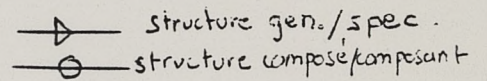 structure gen./spec.
structure composé/composant